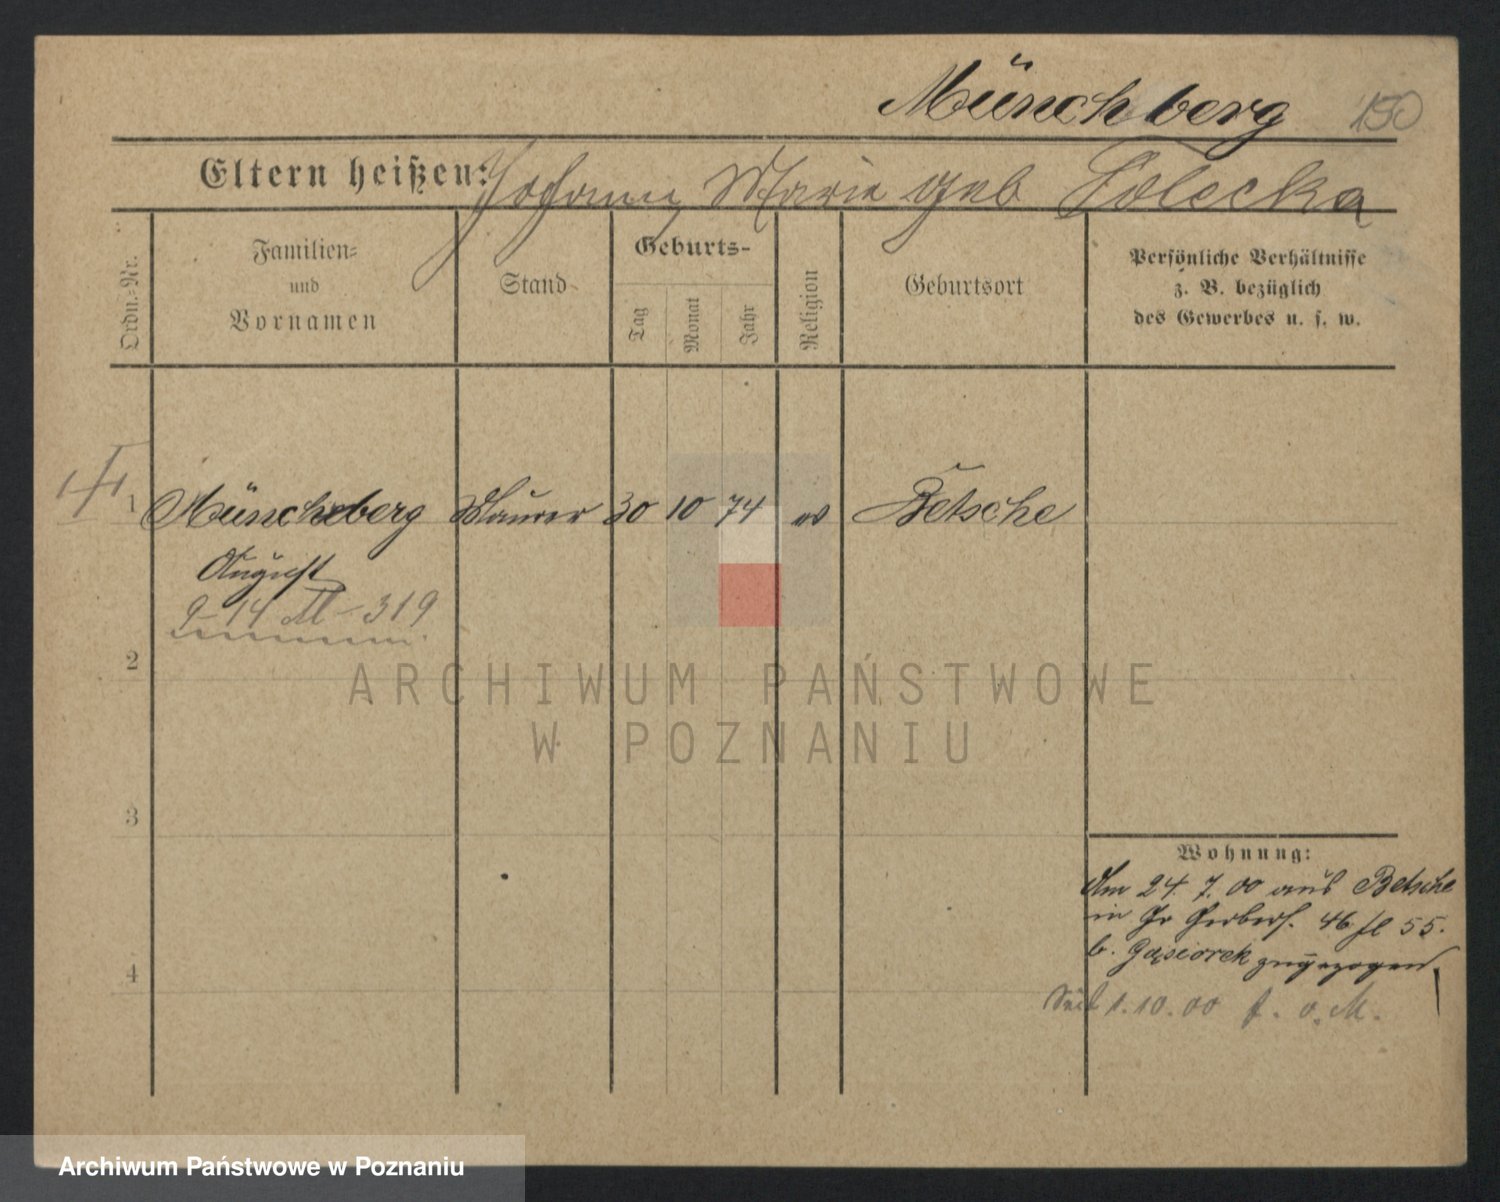 Münchberg 150
Eltern heißen: Johann Marie geb
Ordn.-Nr.
Familien-
und
Vornamen
Stand
Geburts-
Tag
Monat
Jahr
Religion
Geburtsort
Persönliche Verhältnisse
z. B. bezüglich
des Gewerbes u. s. w.
1 Müncheberg Maurer 30 10 74 Betsche
August
9-14 M-319
2
ARCHIWUM PAŃSTWOWE
W POZNANIU
3
Wohnung:
Am 24. 7. 00 aus Betsche
in Gr Gerberst. 46 55.
4
b. Gąsiorek zugezogen
Seit 1.10.00 f. o. M.
Archiwum Państwowe w Poznaniu